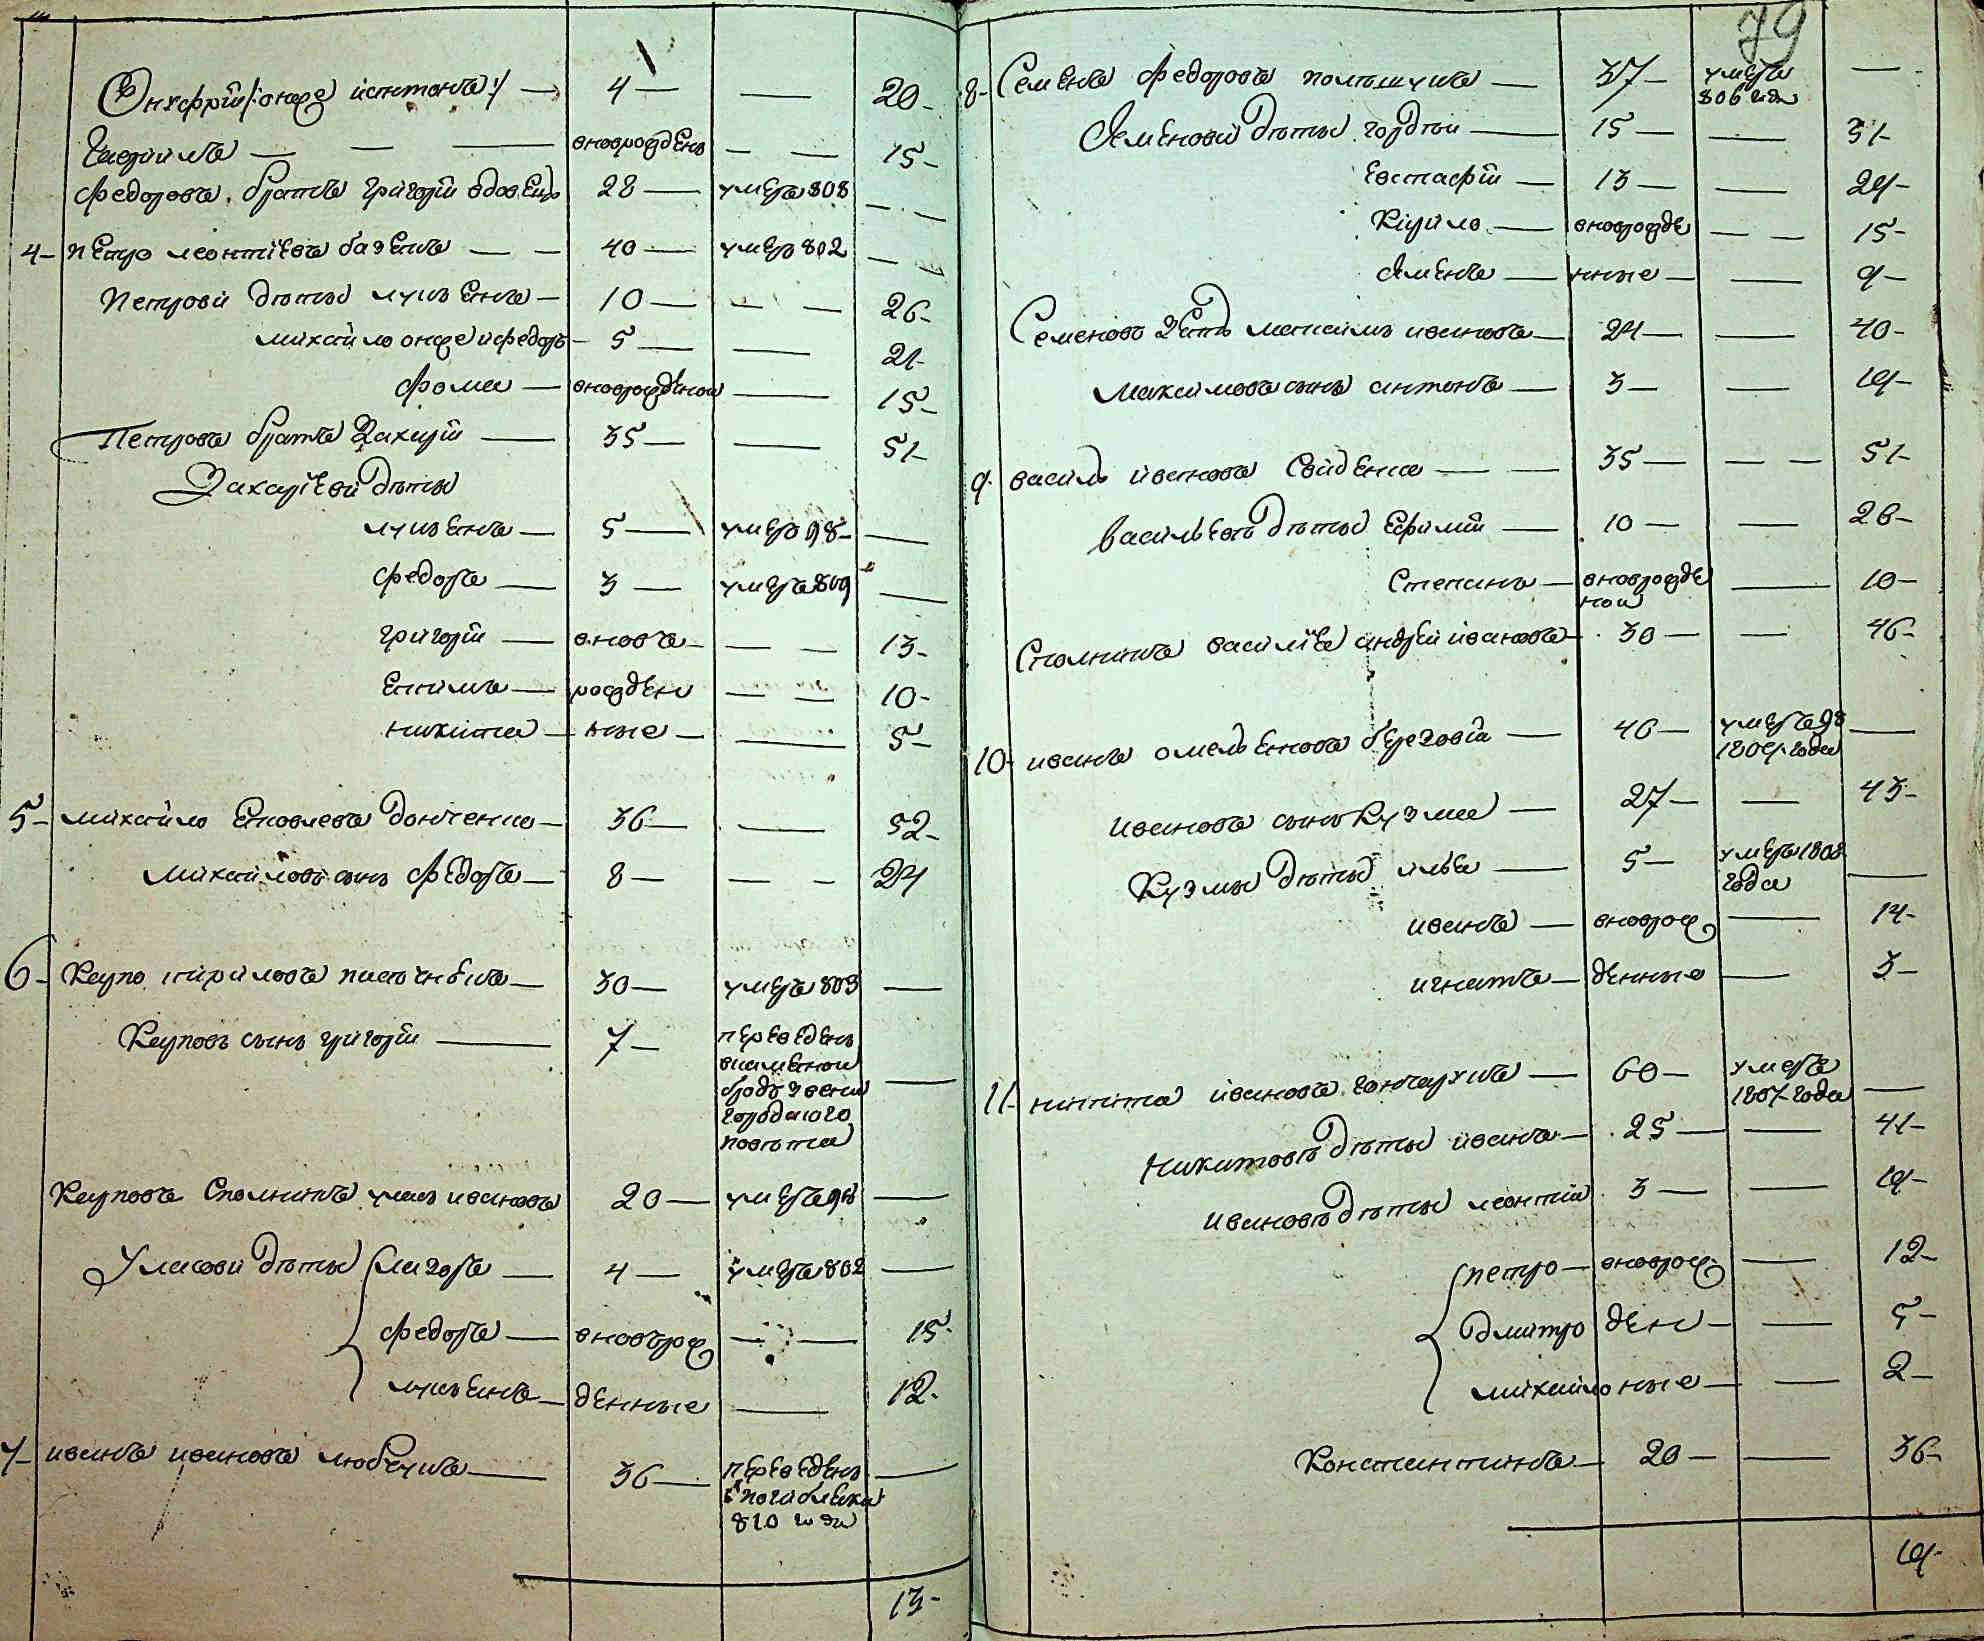 Онуфрий /: онже иантонъ :/ — 4 — — 20 -
— — вноврожденъ — — 15 -
Федоровъ братъ григорій вдовецъ 28 — умеръ 808 — —
4 - Петро леонтіевъ базенъ — — 40 — умеръ 802 — —
Петрови дѣты лукъянъ — 10 — — — 26 -
михайло онже ифедоръ — 5 — — 21 -
фома — вноврожденой — 15 -
Петровъ братъ Захарій — 35 — — 51 -
Захаріеви дѣты
лукъянъ — 5 — умеръ 98 — —
федоръ — 3 — умеръ 809 —
григорій — вновъ — — — 13 -
Екимъ — рожден — — 10 -
никита — ные — — 5 -
5 - михайло Яковлевъ донченко — 36 — — 52 -
михайловъ сынъ федоръ — 8 — — — 24
6 - Карпо кириловъ — 30 — умеръ 803 —
Карповъ сынъ григорій — 7 — переведенъ
вкаменой
бродъ звени
городского
повѣта —
Карповъ Сполникъ уласъ ивановъ 20 — умеръ 98 —
Уласови дѣты лазоръ — 4 — умеръ 802 —
федоръ — вновърож — — 15 -
лукъянъ — денные — 12 -
7 - иванъ ивановъ — 36 — переведенъ
810 года —
13 -
79
8 - Семенъ федоровъ — 37 — умеръ
806 года —
Семенови дѣты гордѣй — 15 — — 31 -
Евстафій — 13 — — 29 -
Кирило — вноврожде — — 15 -
Семенъ — нные — — 9 -
Семеновъ Зять максимъ ивановъ — 24 — — 40 -
максимовъ сынъ антонъ — 3 — — 19 -
9 - василь ивановъ — — 35 — — — 51 -
васильевы дѣты Ефимій — 10 — — 26 -
Степанъ — вноврожде
ной — 10 -
Сполникъ василіевъ андрей ивановъ — 30 — — 46 -
10 - иванъ омеляновъ береговій — 46 — умеръ
1809 года —
ивановъ сынъ Кузма — 27 — — 43 -
Кузмы дѣты илья — 5 — умеръ 1808
года —
иванъ — вноврож — 14 -
игнатъ — денные — 3 -
11 - никита ивановъ гончарукъ — 60 — умеръ
1807 года —
Никитовы дѣты иванъ — 25 — — 41 -
ивановы дѣты леонтій 3 — — 19 -
петро — вноврож — 12 -
дмитро ден — — 5 -
михайло ные — — 2 -
Константинъ — 20 — — 36 -
19 -